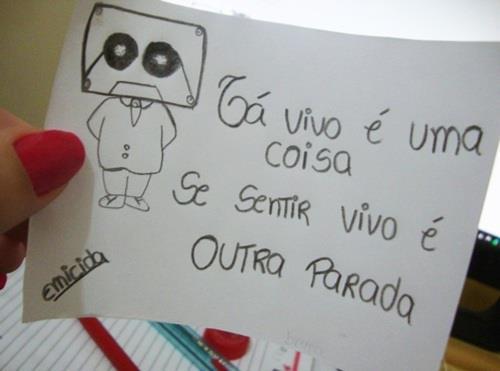 Tá vivo é uma
coisa
Se sentir vivo é
OUTRA PARADA
Emicida